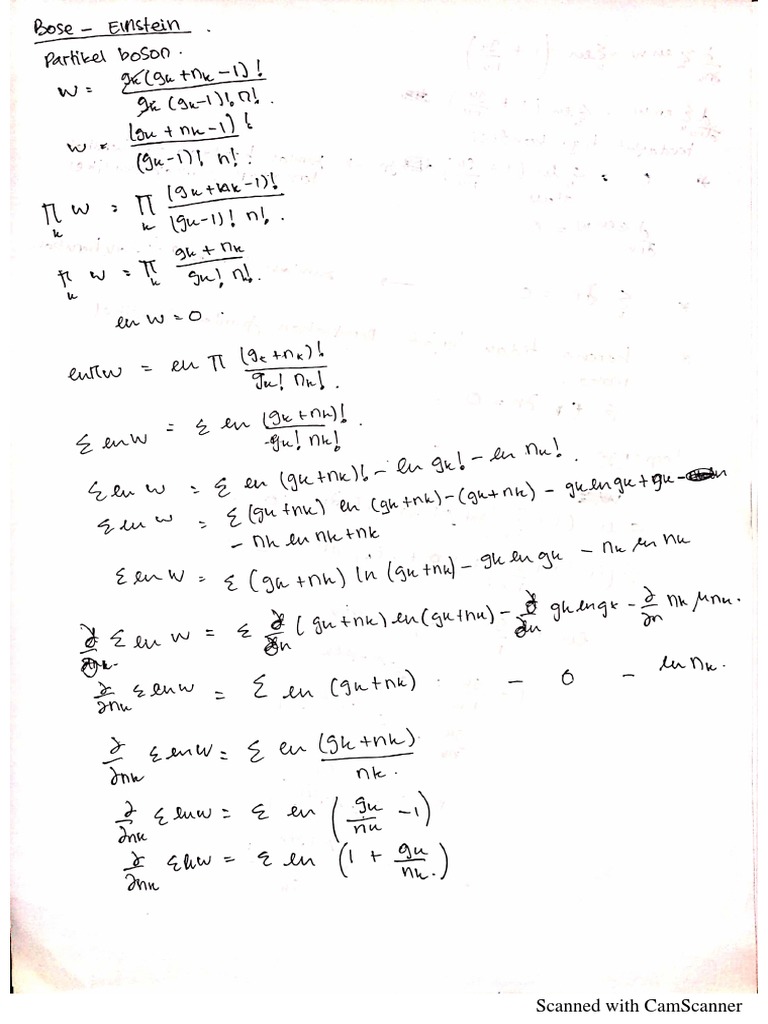 Bose - Einstein.
Partikel boson.
W = gk(gk + nk - 1)! / gk (gk-1)! n!.
W = (gk + nk - 1)! / (gk-1)! n!.
π_k W = π_k (gk + nk - 1)! / (gk-1)! n!.
π_k W = π_k gk + nk / gk! n!.
ln W = 0.
ln π W = ln π (gk + nk)! / gk! nk!.
Σ ln W = Σ ln (gk + nk)! / gk! nk!.
Σ ln W = Σ ln (gk + nk)! - ln gk! - ln nk!.
Σ ln W = Σ (gk + nk) ln (gk + nk) - (gk + nk) - gk ln gk + gk -
- nk ln nk + nk
Σ ln W = Σ (gk + nk) ln (gk + nk) - gk ln gk - nk ln nk
∂/∂nk Σ ln W = Σ ∂/∂n (gk + nk) ln (gk + nk) - ∂/∂n gk ln gk - ∂/∂n nk ln nk.
∂/∂nk Σ ln W = Σ ln (gk + nk) - 0 - ln nk.
∂/∂nk Σ ln W = Σ ln (gk + nk) / nk.
∂/∂nk Σ ln W = Σ ln (gk/nk - 1)
∂/∂nk Σ ln W = Σ ln (1 + gk/nk.)
Scanned with CamScanner